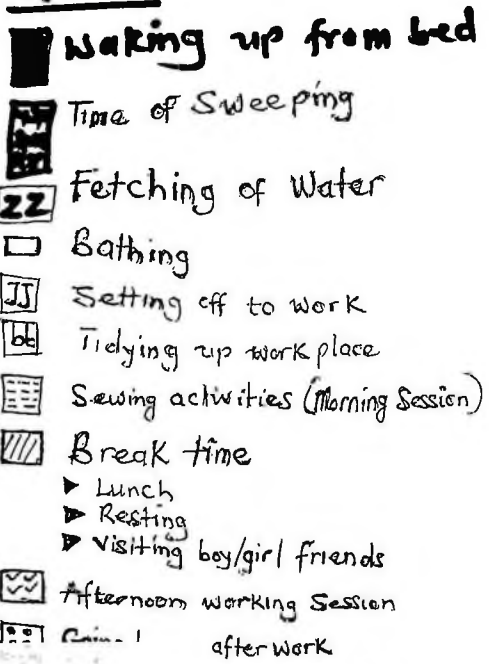 Waking up from bed
Time of Sweeping
ZZ Fetching of Water
Bathing
JJ Setting off to work
bb Tidying up work place
Sewing activities (Morning Session)
Break time
Lunch
Resting
Visiting boy/girl friends
Afternoon working Session
after work